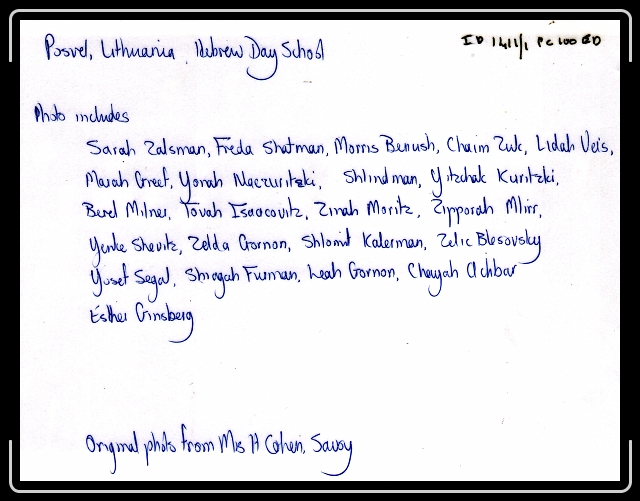 Posvel, Lithuania, Hebrew Day School
Photo includes
Sarah Zalsman, Freda Shatman, Morris Benush, Chaim Zuk, Lidah Veis,
Marah Greef, Yonah Naczuritzki, Shlindman, Yitzchak Kuritzki,
Berel Milner, Tovah Isaacovitz, Zinah Moritz, Zipporah
Yenke Shevitz, Zelda Gornon, Shlomit Kalerman, Zelic Blesovsky
Yosef Segal, Shragah Furman, Leah Gornon, Chayah Achbar
Esther Ginsberg
Original photo from Mrs H Cohen, Savoy